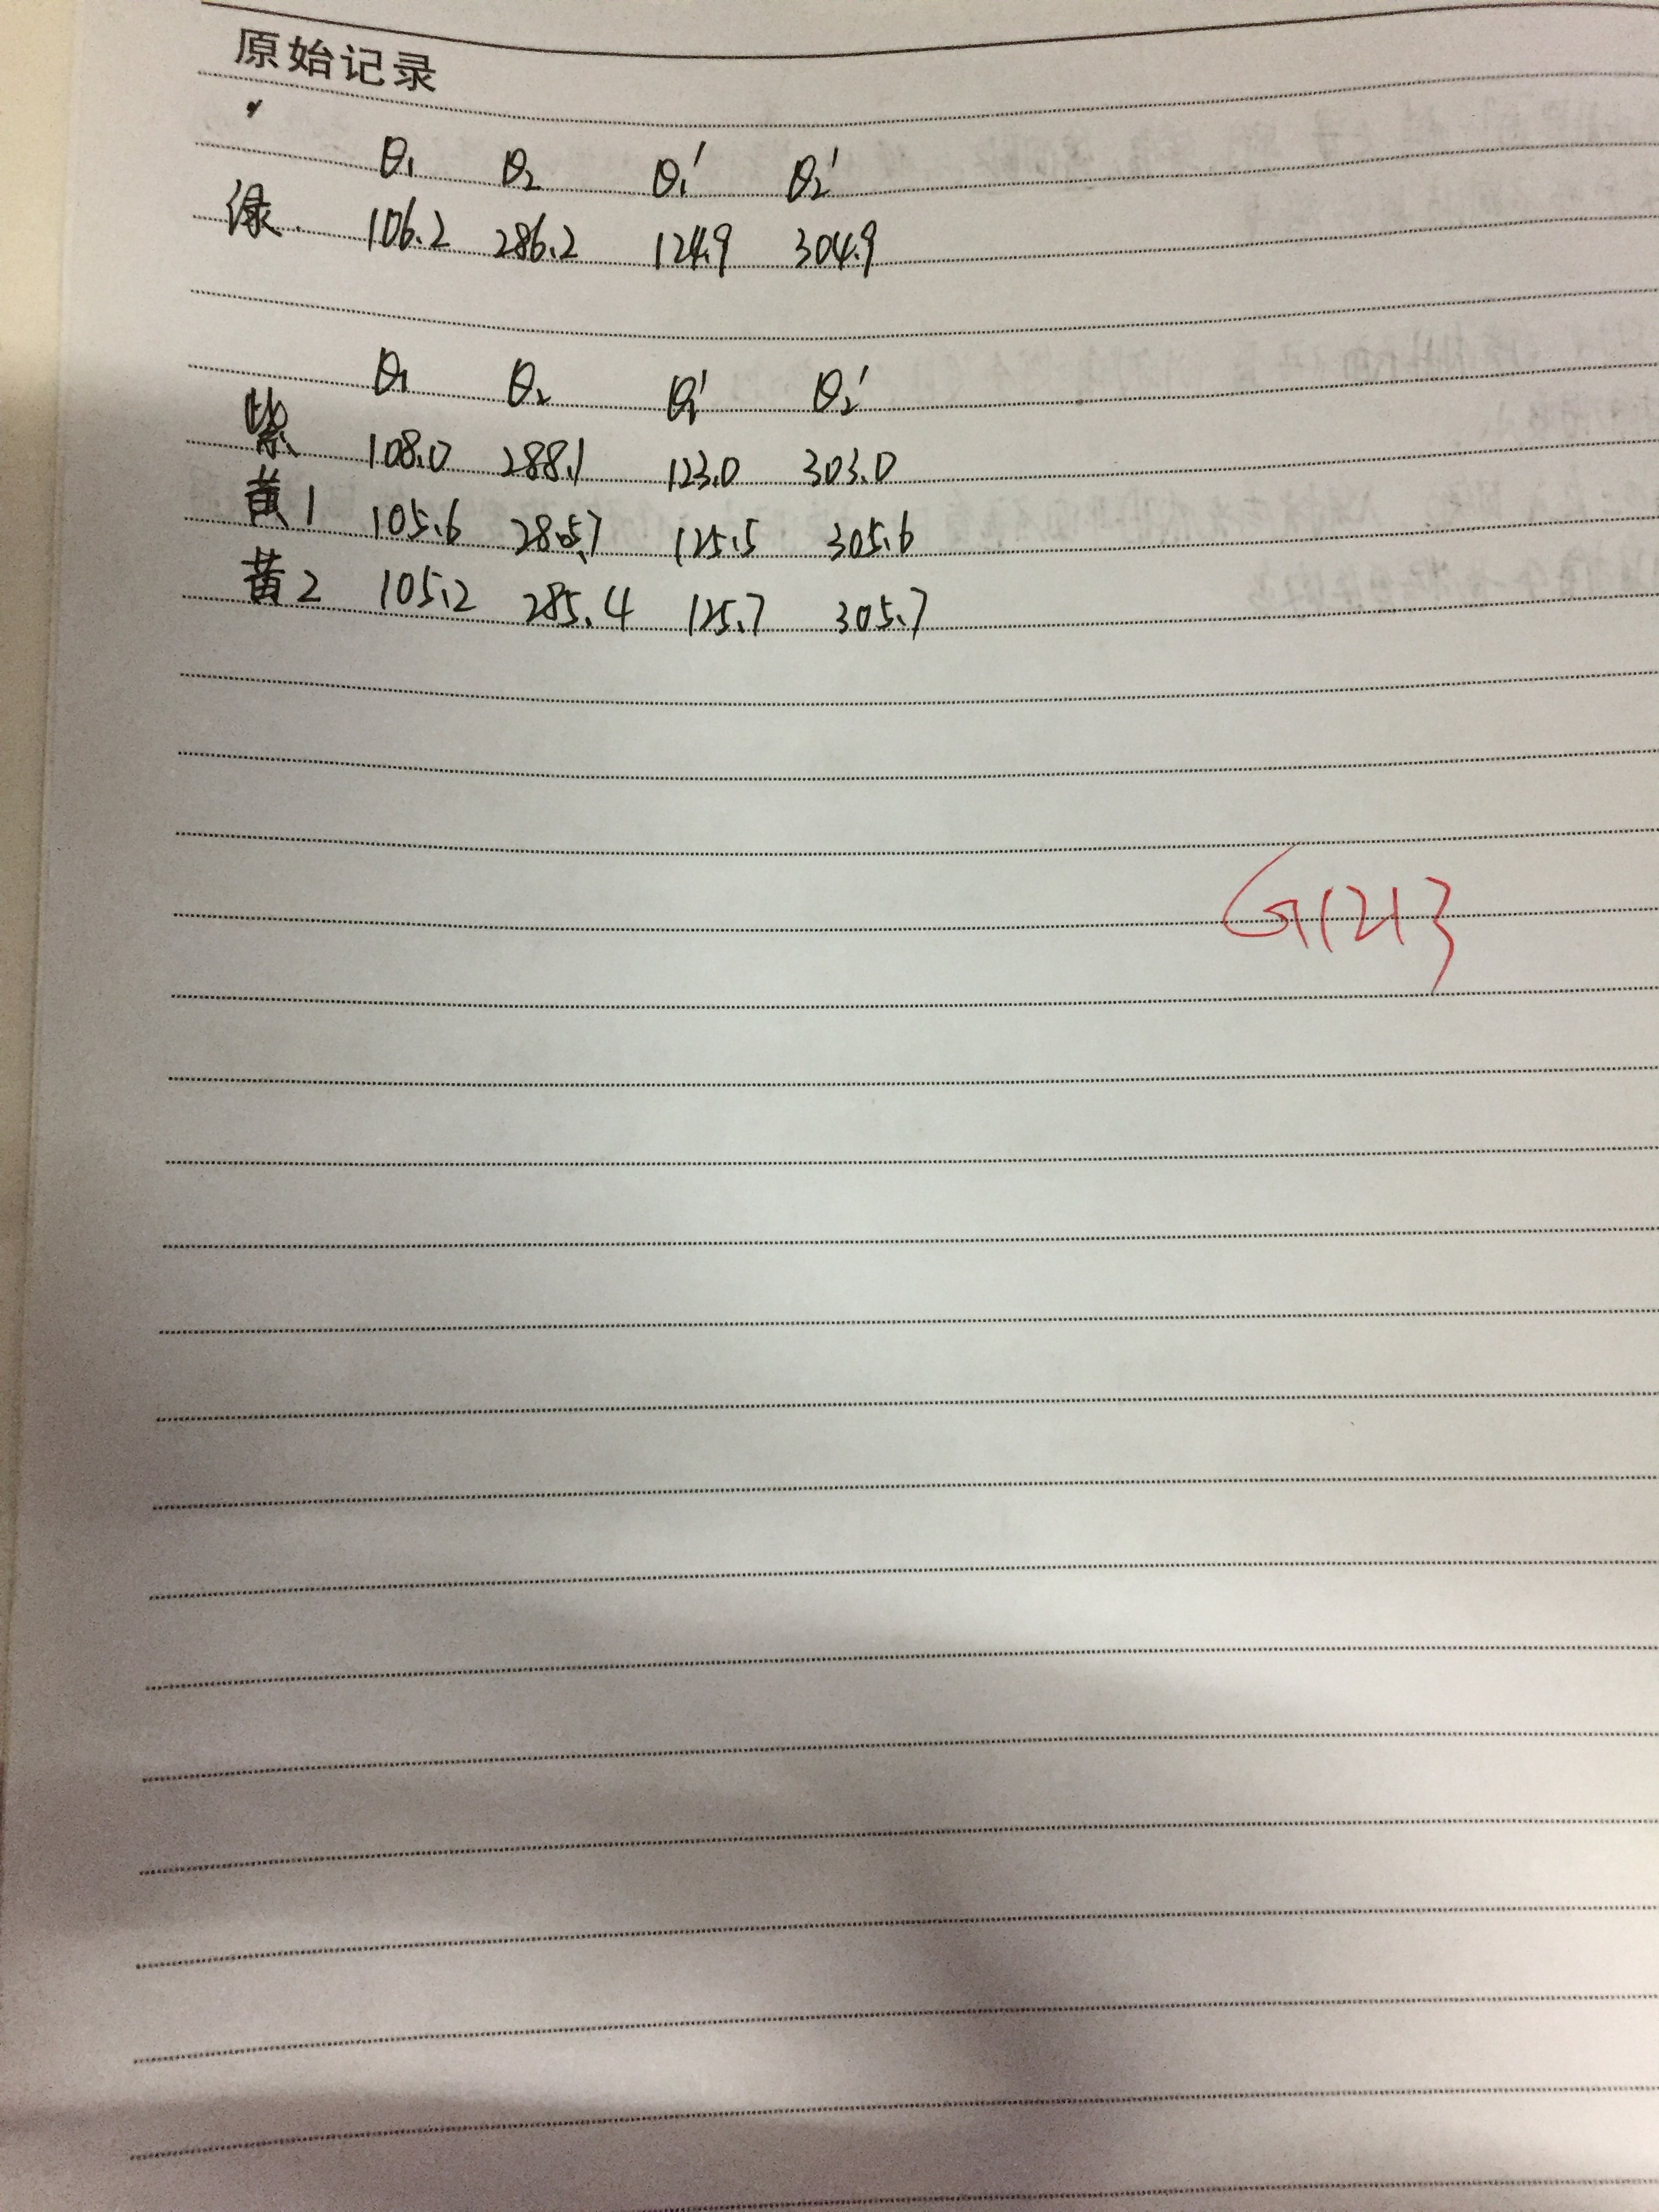 原始记录
θ₁ θ₂ θ₁' θ₂'
绿. 106.2 286.2 124.9 304.9
θ₁ θ₂ θ₁' θ₂'
紫 108.0 288.1 123.0 303.0
黄1 105.6 285.7 125.5 305.6
黄2 105.2 285.4 125.7 305.7